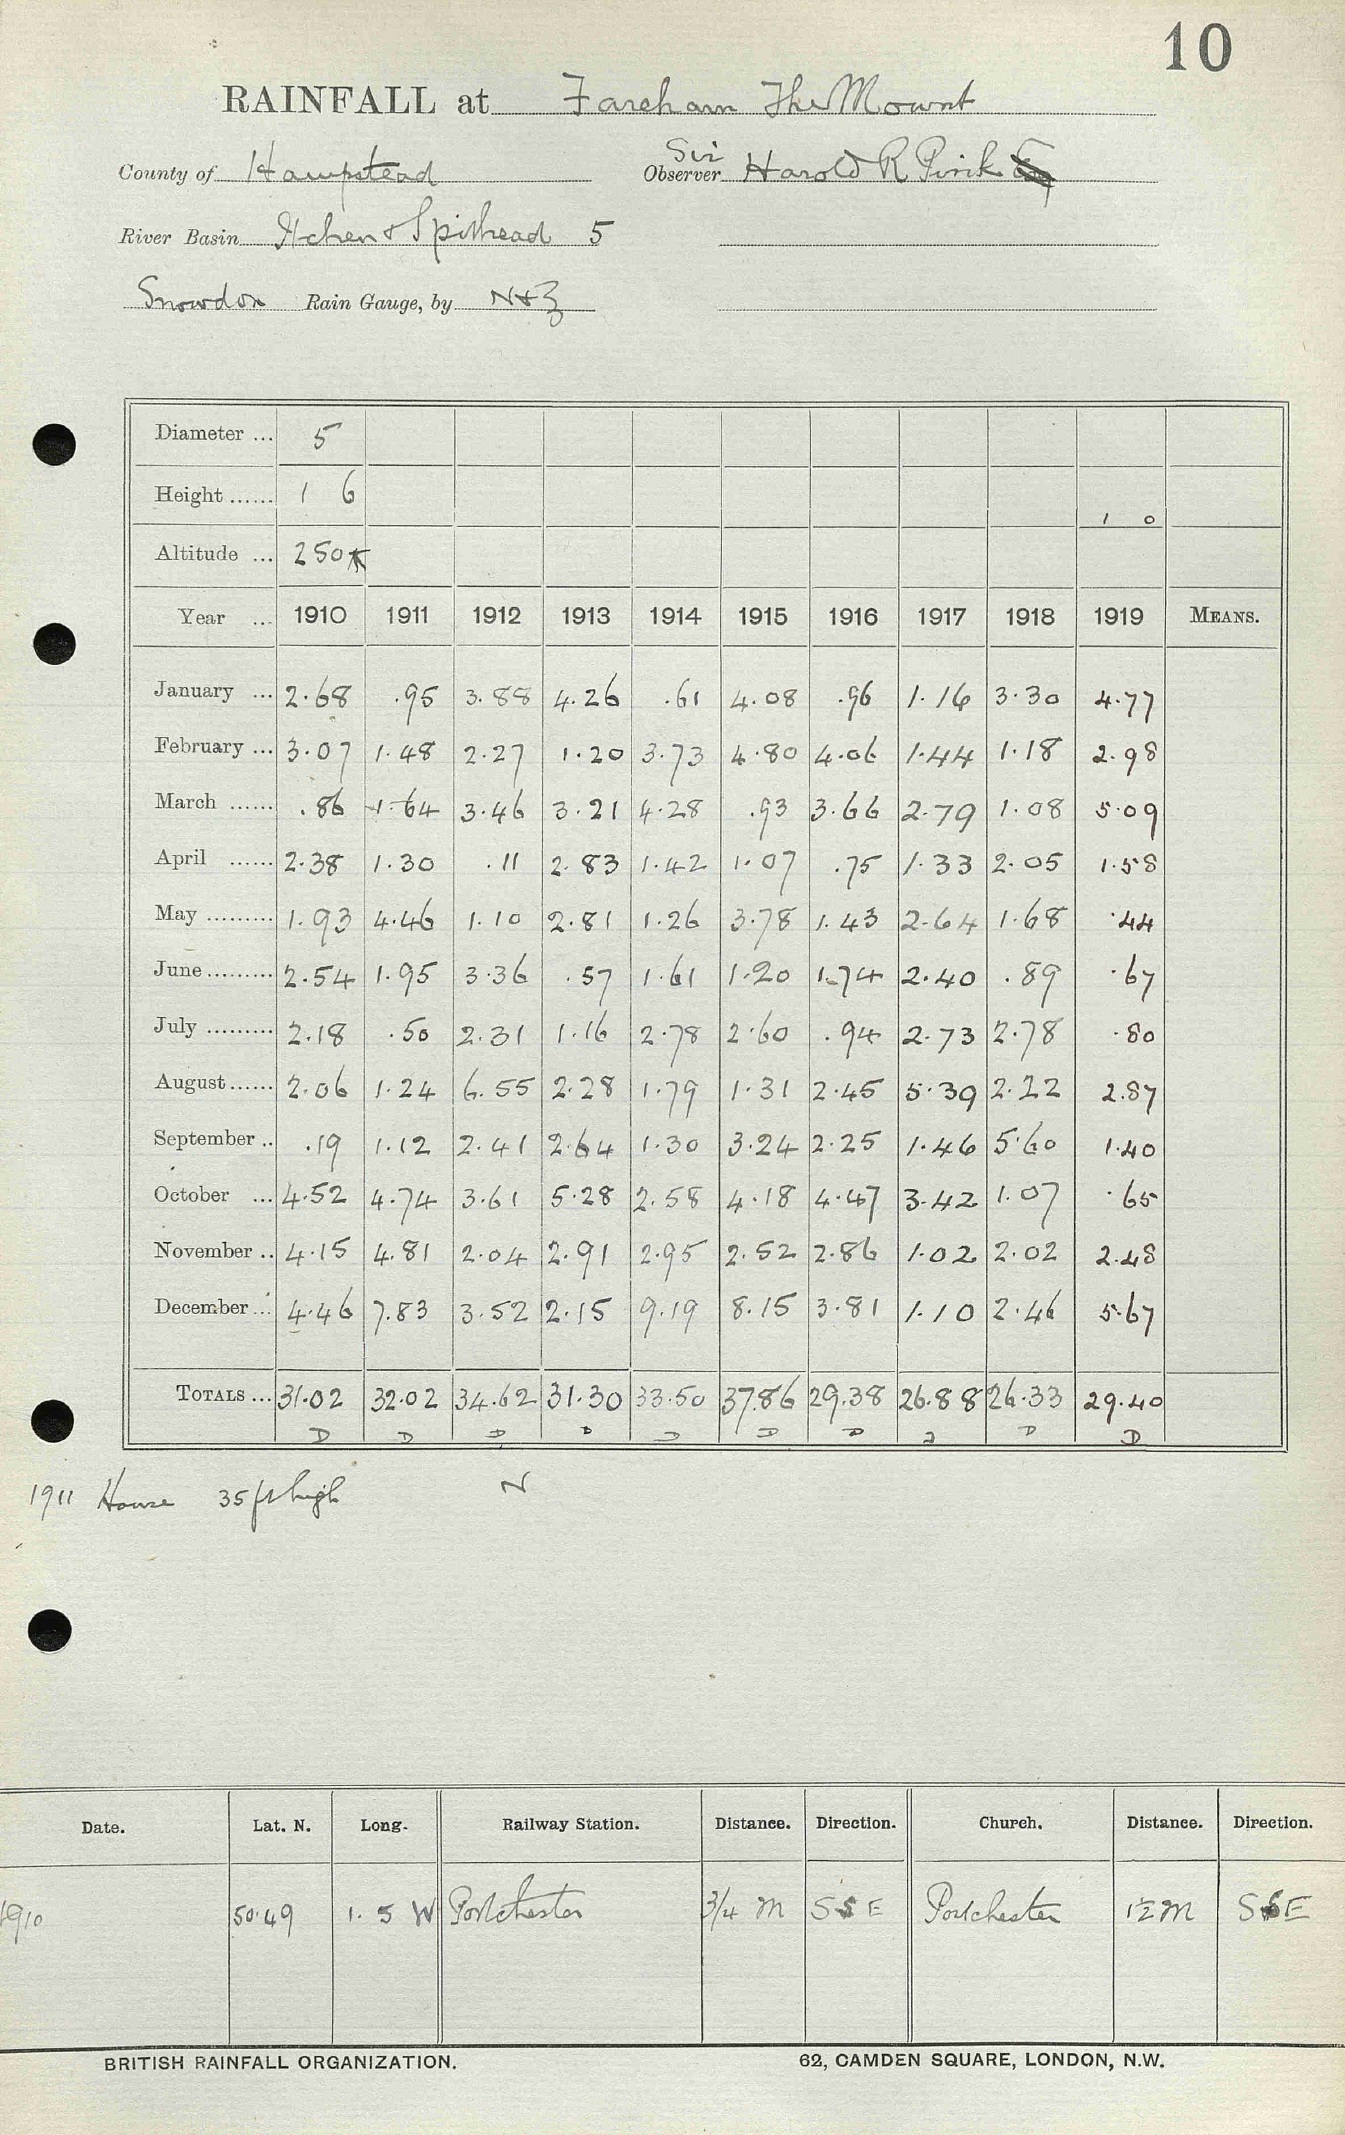 10
RAINFALL at Fareham The Mount
County of Hampstead Sir Observer Harold R Pink
River Basin Itchen & Spithead 5
Snowdon Rain Gauge, by N&Z
Diameter ... 5
Height ...... 1 6 1 0
Altitude ... 250
Year ... 1910 1911 1912 1913 1914 1915 1916 1917 1918 1919 MEANS.
January ... 2.68 .95 3.88 4.26 .61 4.08 .96 1.16 3.30 4.77
February ... 3.07 1.48 2.27 1.20 3.73 4.80 4.06 1.44 1.18 2.98
March ...... .86 1.64 3.46 3.21 4.28 .93 3.66 2.79 1.08 5.09
April ...... 2.38 1.30 .11 2.83 1.42 1.07 .75 1.33 2.05 1.58
May ......... 1.93 4.46 1.10 2.81 1.26 3.78 1.43 2.64 1.68 .44
June ......... 2.54 1.95 3.36 .57 1.61 1.20 1.74 2.40 .89 .67
July ......... 2.18 .50 2.31 1.16 2.78 2.60 .94 2.73 2.78 .80
August ...... 2.06 1.24 6.55 2.28 1.79 1.31 2.45 5.39 2.22 2.87
September .. .19 1.12 2.41 2.64 1.30 3.24 2.25 1.46 5.60 1.40
October ... 4.52 4.74 3.61 5.28 2.58 4.18 4.47 3.42 1.07 .65
November .. 4.15 4.81 2.04 2.91 2.95 2.52 2.86 1.02 2.02 2.48
December ... 4.46 7.83 3.52 2.15 9.19 8.15 3.81 1.10 2.46 5.67
TOTALS ... 31.02 32.02 34.62 31.30 33.50 37.86 29.38 26.88 26.33 29.40
D D D D D D D D D D
1911 House 35 ft high N
Date. Lat. N. Long. Railway Station. Distance. Direction. Church. Distance. Direction.
1910 50.49 1. 5 W Portchester 3/4 M S E Portchester 1½ M S E
BRITISH RAINFALL ORGANIZATION. 62, CAMDEN SQUARE, LONDON, N.W.